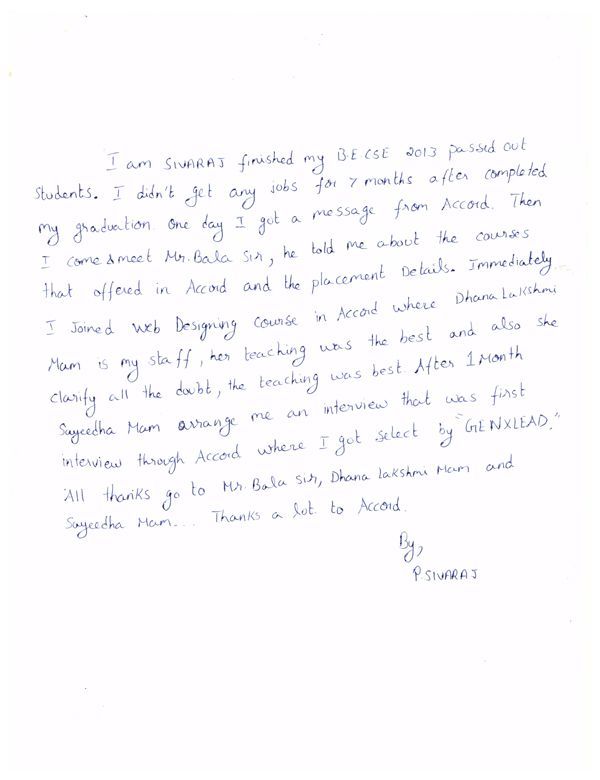 I am SIVARAJ finished my B.E CSE 2013 passed out
students. I didn't get any jobs for 7 months after completed
my graduation. One day I got a message from Accord. Then
I come & meet Mr. Bala Sir, he told me about the courses
that offered in Accord and the placement Details. Immediately
I Joined Web Designing Course in Accord where Dhana Lakshmi
Mam is my staff, her teaching was the best and also she
clarify all the doubt, the teaching was best After 1 Month
Sayeedha Mam arrange me an interview that was first
interview through Accord where I got select by "GENXLEAD."
All thanks go to Mr. Bala Sir, Dhana Lakshmi Mam and
Sayeedha Mam... Thanks a lot to Accord.
By,
P. SIVARAJ